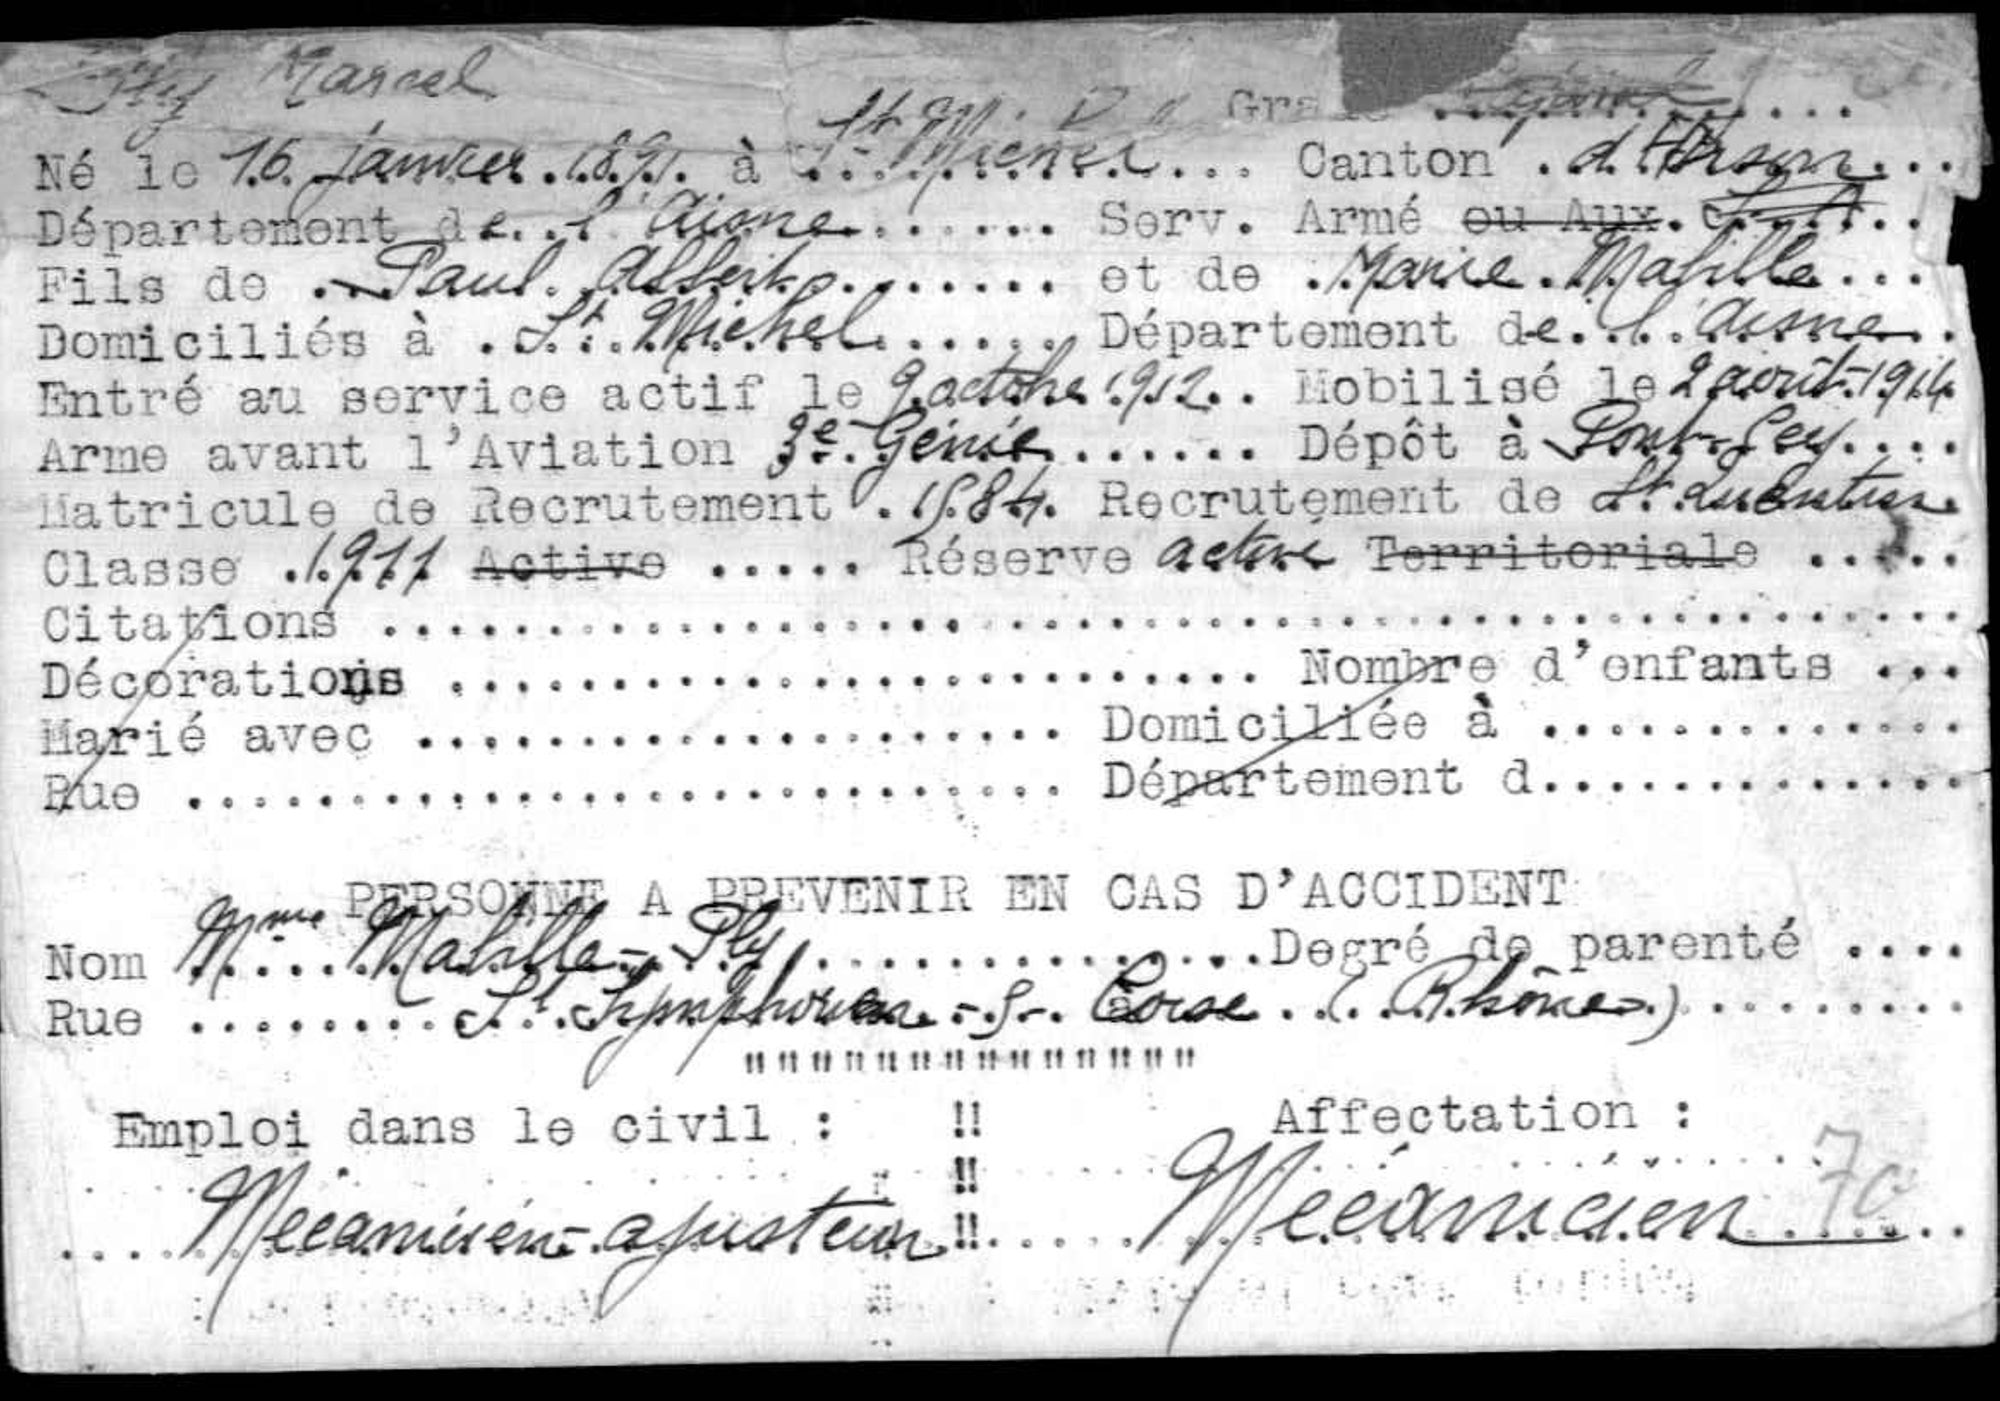 Ply Marcel
Né le 16 janvier 1891 à St Michel Canton d'Hirson
Département de l'Aisne Serv. Armé ou Aux.
Fils de Paul Albert et de Marie Mabille
Domiciliés à St Michel Département de l'Aisne
Entré au service actif le 9 octobre 1912 Mobilisé le 2 août 1914
Arme avant l'Aviation 3e Génie Dépôt à
Matricule de Recrutement 1584 Recrutement de St Quentin
Classe 1911 Active Réserve active Territoriale
Citations
Décorations Nombre d'enfants
Marié avec Domiciliée à
Rue Département d
PERSONNE A PREVENIR EN CAS D'ACCIDENT
Nom Mme Mabille-Ply Degré de parenté
Rue St Symphorien - s- Coise (Rhône)
""""""""""""""
Emploi dans le civil : !! Affectation :
!!
Mécanicien-ajusteur !! Mécanicien